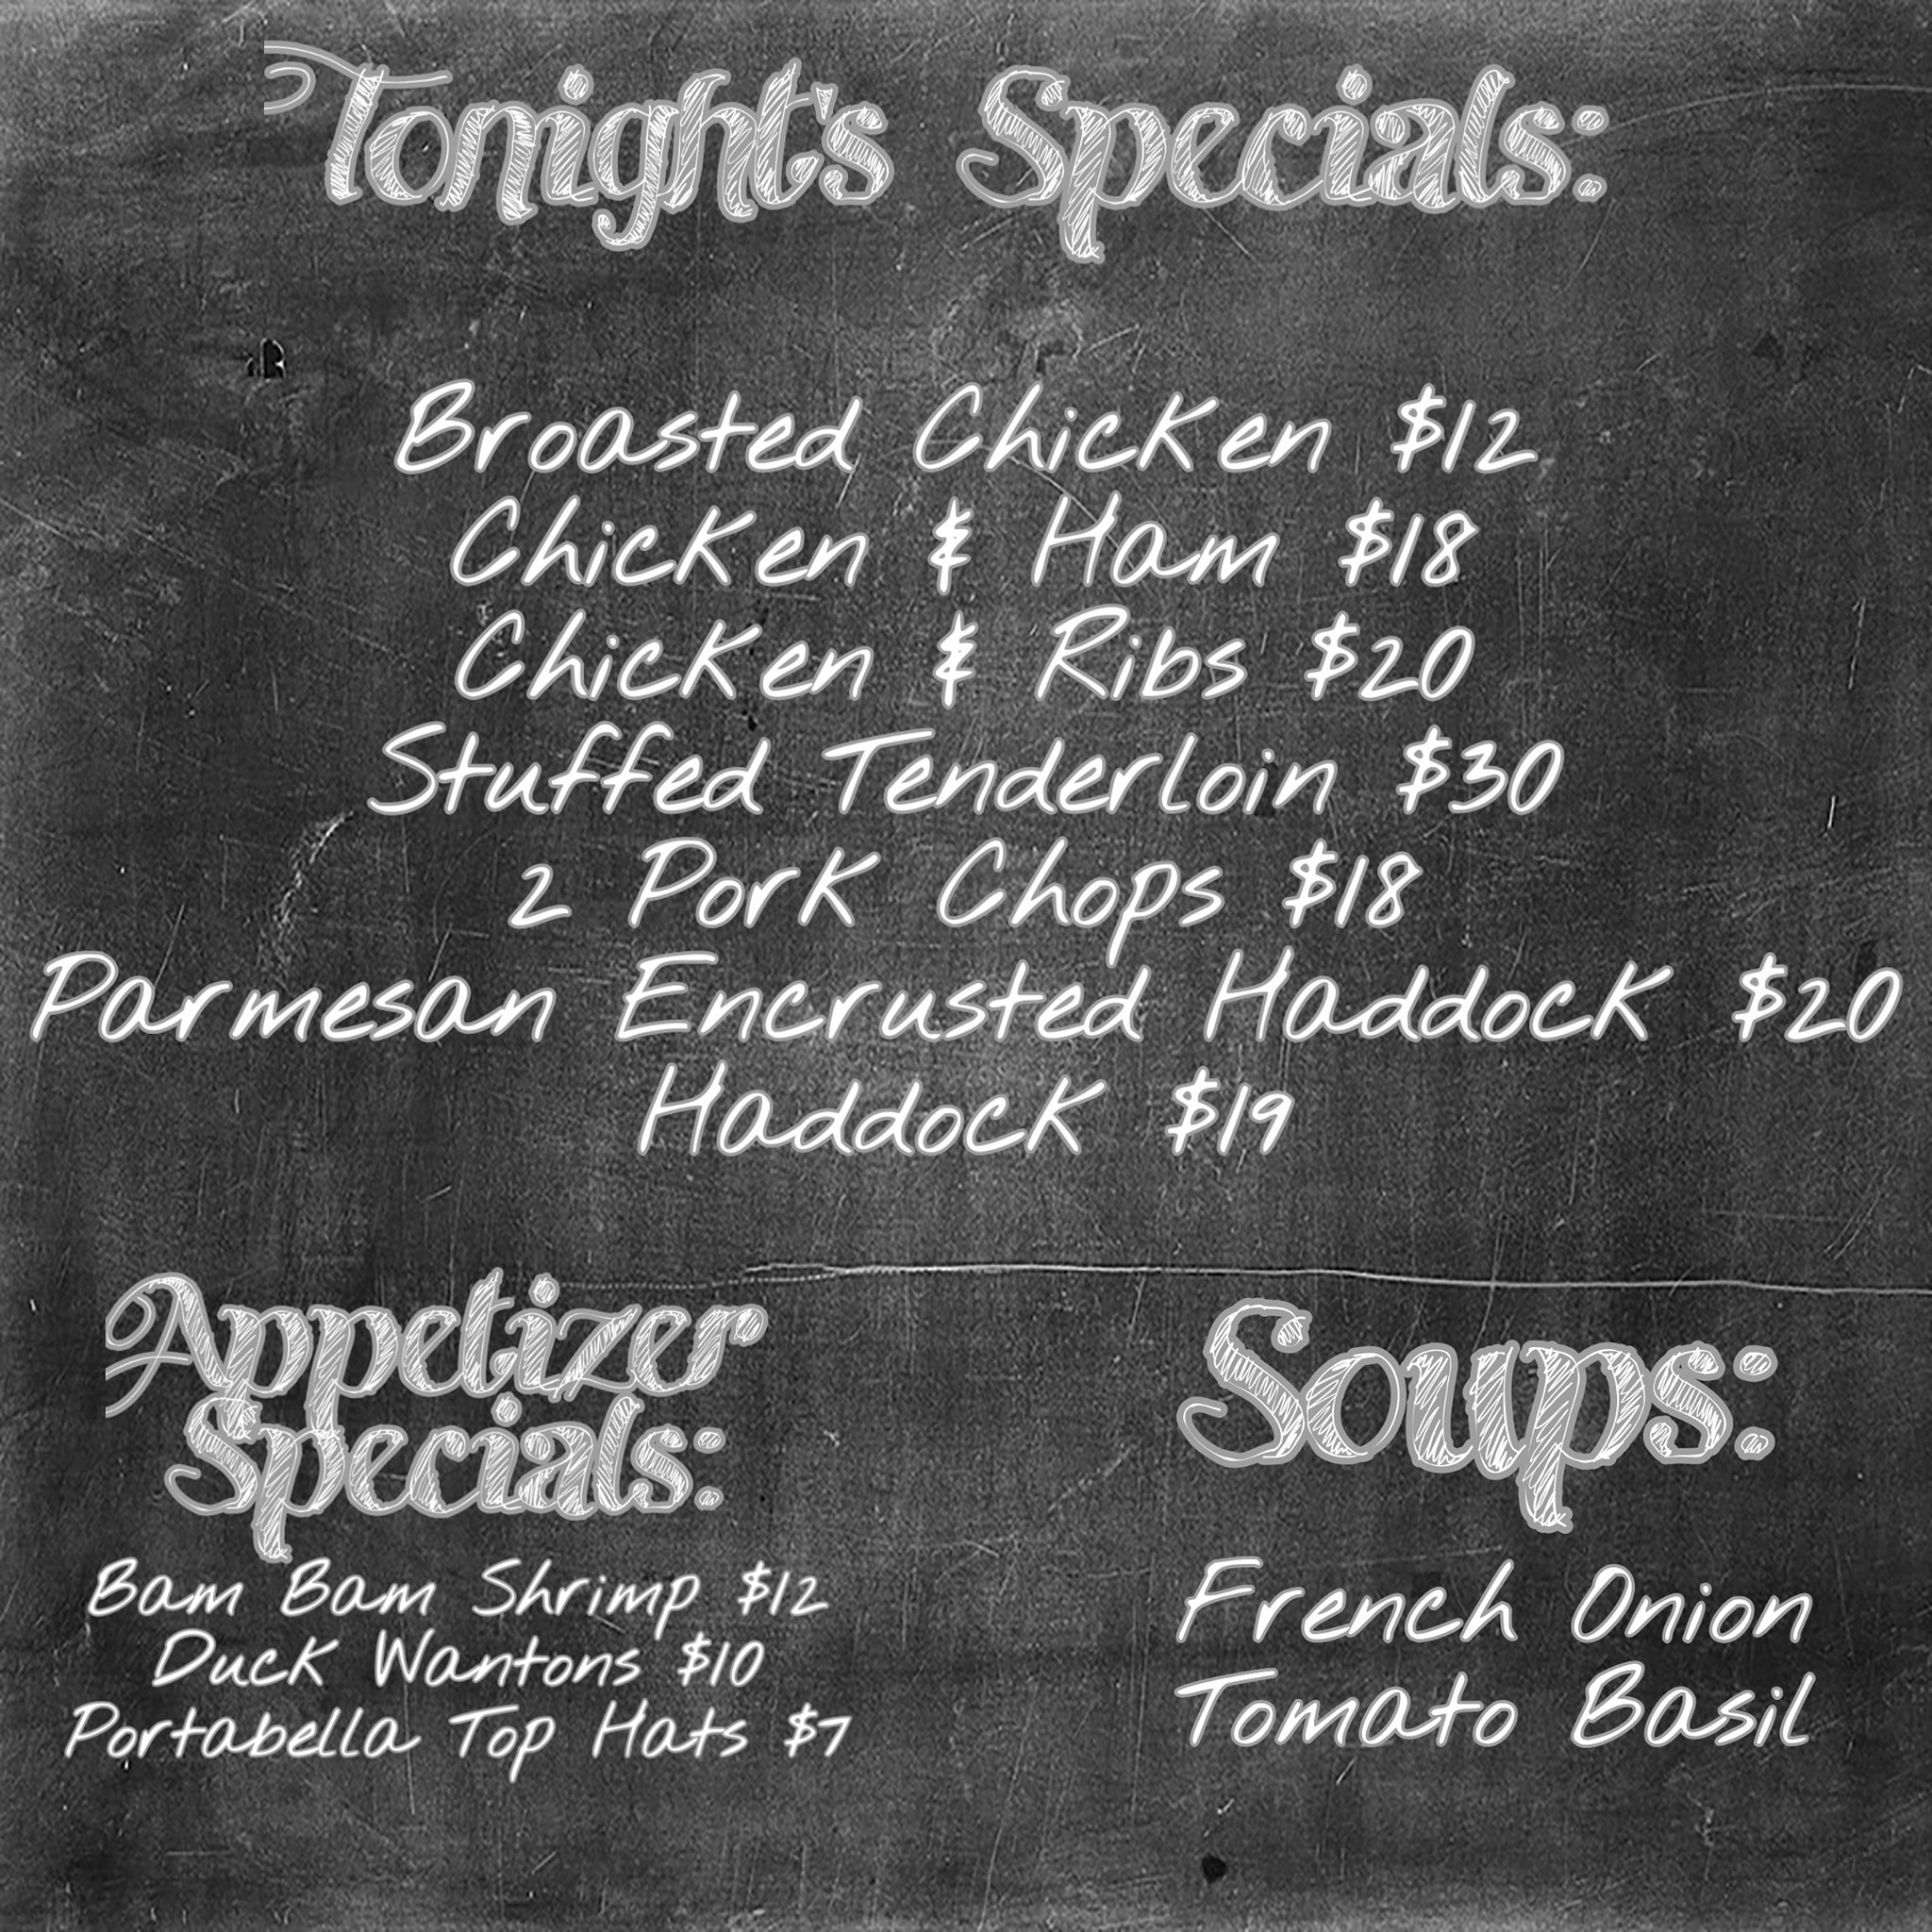 Tonight's Specials:
Broasted Chicken $12
Chicken & Ham $18
Chicken & Ribs $20
Stuffed Tenderloin $30
2 Pork Chops $18
Parmesan Encrusted Haddock $20
Haddock $19
Appetizer
Specials:
Bam Bam Shrimp $12
Duck Wantons $10
Portabella Top Hats $7
Soups:
French Onion
Tomato Basil